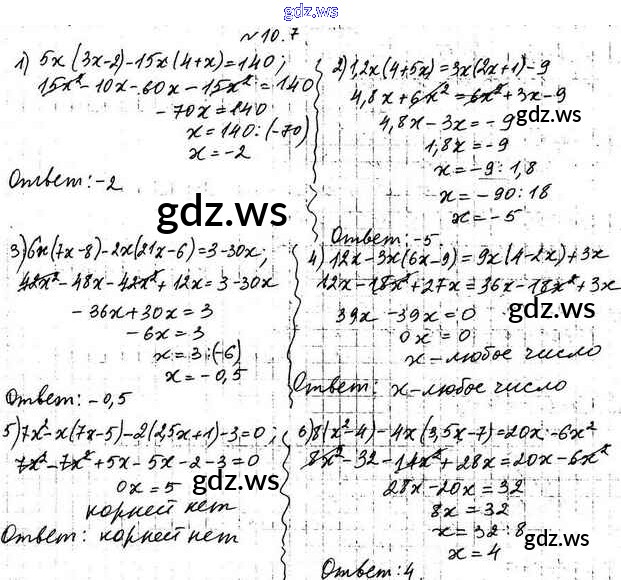 gdz.ws
№ 10.7
1) 5x(3x-2)-15x(4+x)=140;
15x²-10x-60x-15x²=140
-70x=140
x=140:(-70)
x=-2
Ответ: -2
2) 1,2x(4+5x)=3x(2x+1)-9
4,8x+6x²=6x²+3x-9
gdz.ws
4,8x-3x=-9
1,8x=-9
x=-9:1,8
x=-90:18
x=-5
Ответ: -5.
gdz.ws
3) 6x(7x-8)-2x(21x-6)=3-30x;
42x²-48x-42x²+12x=3-30x
-36x+30x=3
-6x=3
x=3:(-6)
x=-0,5
Ответ: -0,5
4) 12x-3x(6x-9)=9x(4-2x)+3x
12x-18x²+27x=36x-18x²+3x
gdz.ws
39x-39x=0
0x=0
x-любое число
Ответ: x-любое число
5) 7x²-x(7x-5)-2(2,5x+1)-3=0;
7x²-7x²+5x-5x-2-3=0
0x=5
gdz.ws
корней нет
Ответ: корней нет
6) 8(x²-4)-4x(3,5x-7)=20x-6x²
8x²-32-14x²+28x=20x-6x²
28x-20x=32
8x=32
x=32:8
gdz.ws
x=4
Ответ: 4